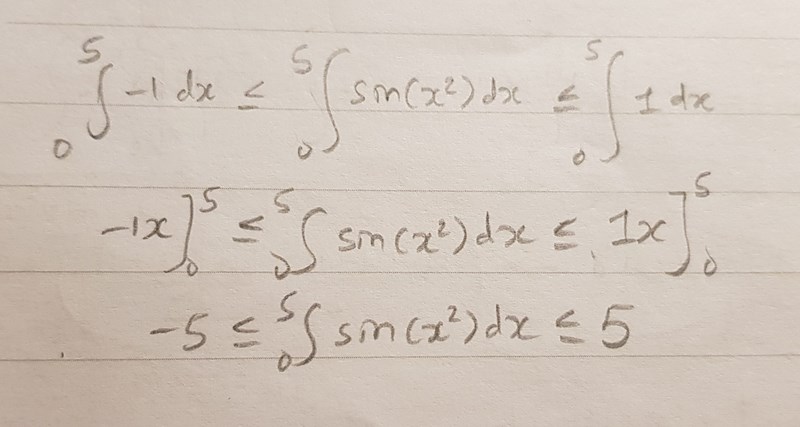 ₀⁵∫ -1 dx ≤ ₀⁵∫ sin(x²) dx ≤ ₀⁵∫ 1 dx
-1x]₀⁵ ≤ ₀⁵∫ sin(x²) dx ≤ 1x]₀⁵
-5 ≤ ₀⁵∫ sin(x²) dx ≤ 5